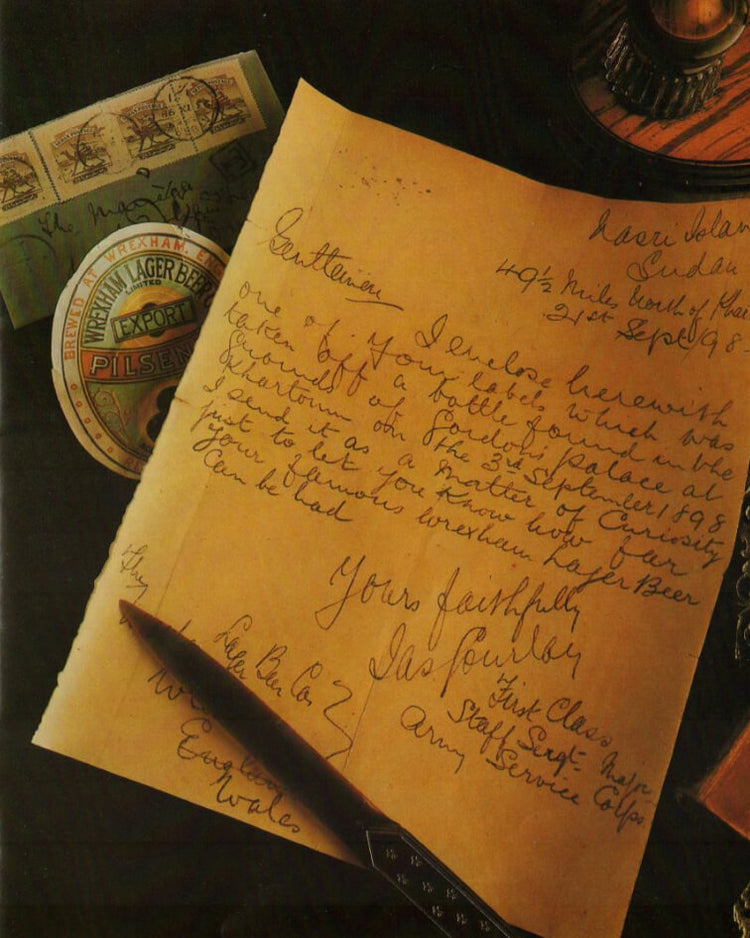 The Man
BREWED AT WREXHAM, ENG
WREXHAM LAGER BEER C
LIMITED
EXPORT
PILSEN
Nasri Islan
Sudan
49½ Miles North of Kha
21st Sept/98
Gentlemen
I enclose herewith
one of your labels which was
taken off a bottle found in the
Grounds of Gordons palace at
Khartoum on the 3rd September 1898
I send it as a matter of Curiosity
just to let you know how far
your famous Wrexham Lager Beer
Can be had
Yours faithfully
Jas Gourlay
First Class
Staff Sergt. Major
Army Service Corps
Lager Beer Co
Englan
Wales